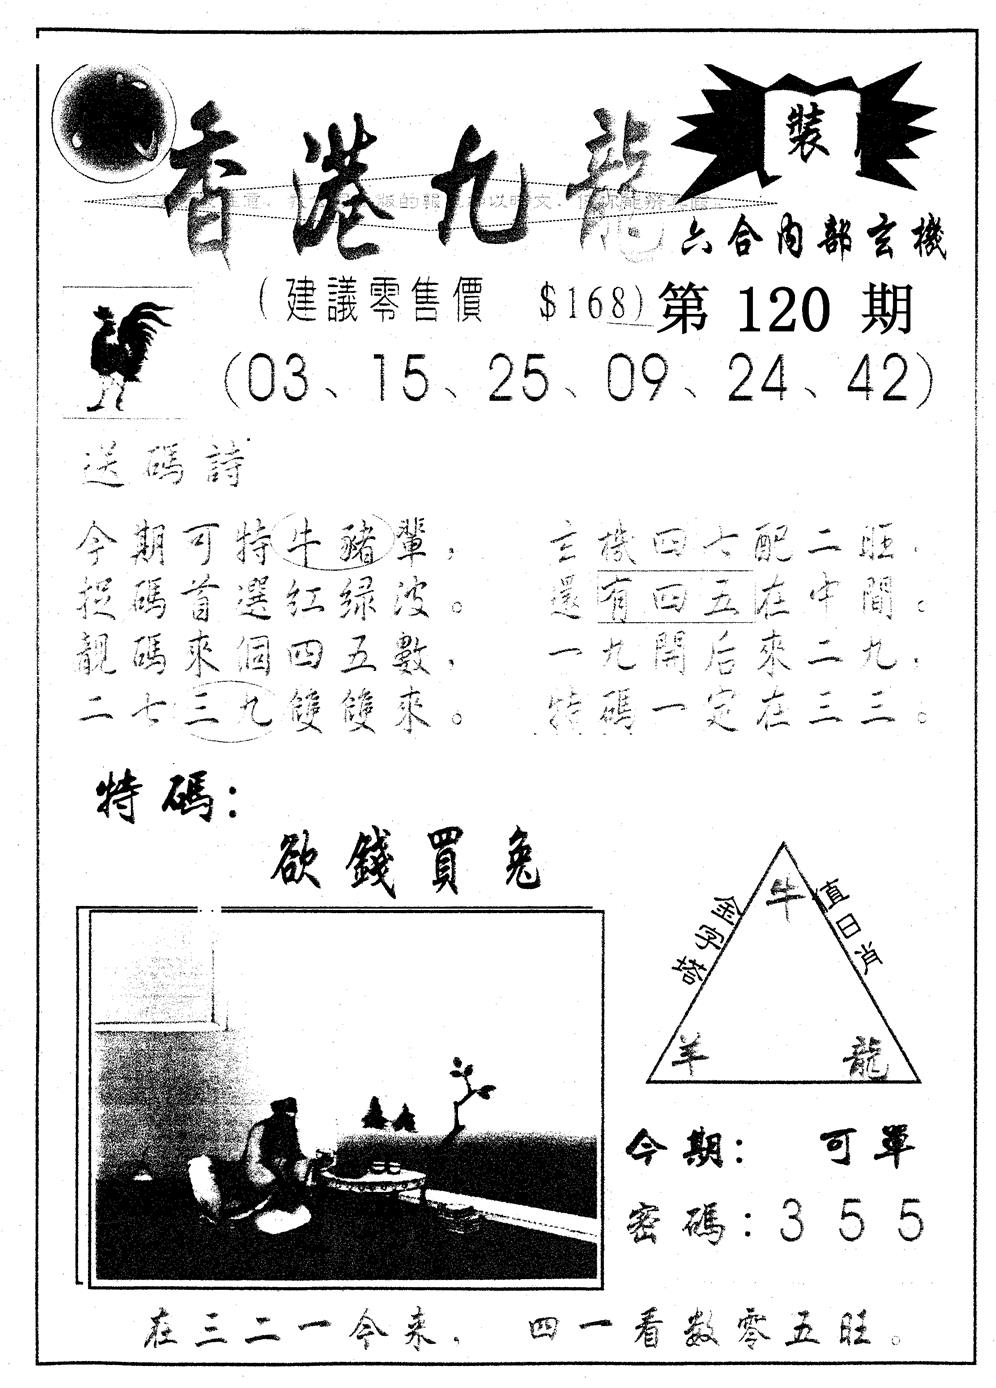 香港九龍
裝
版的報
六合內部玄機
(建議零售價 $168)
第 120 期
(03、15、25、09、24、42)
送碼詩
今期可特牛豬輩，
捉碼首選紅绿波。
靚碼來個四五數，
二七三九雙雙來。
玄機四七配二旺，
還有四五在中間。
一九開后來二九，
特碼一定在三三。
特碼：
欲錢買兔
金字塔
值日肖
牛
羊
龍
今期： 可單
密碼：355
在三二一今来， 四一看数零五旺。